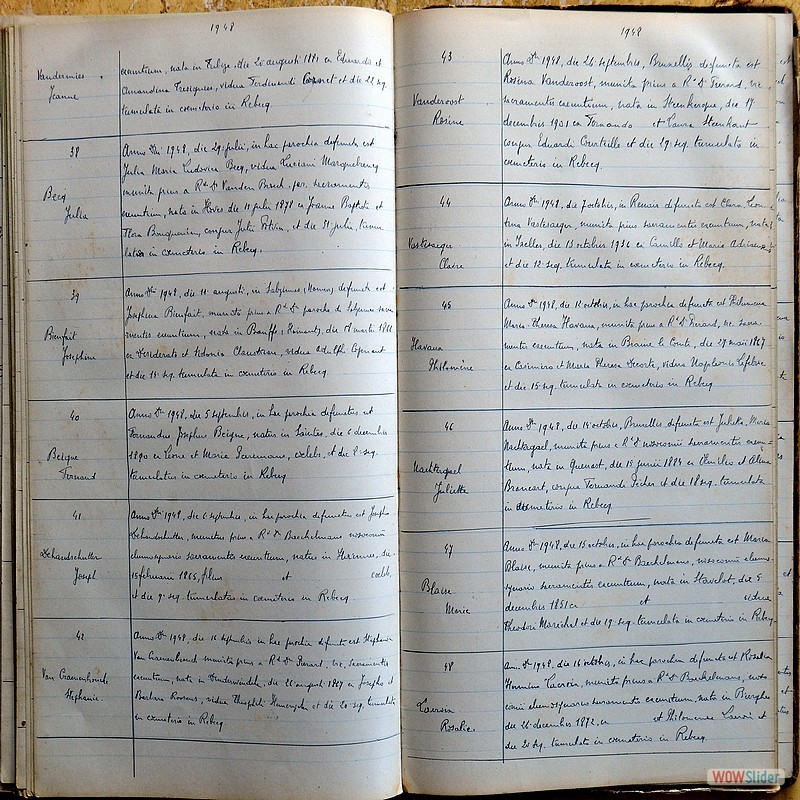 1948
Vandermies
Jeanne
exeuntium, nata in Tubize, die 20 augusti 1881 ex Eduardo et
Amandina Tresignies, vidua Ferdinandi et die 22 seq.
tumulata in cœmeterio in Rebecq
38
Becq
Julia
Anno Dni 1948, die 29 julii, in hac parochia defuncta est
Julia Maria Ludovica Becq, vidua Luciani
munita prius a Rdo D Vanden Bosch, sacramentis
exeuntium, nata in Hoves die 11 julii 1878 ex Joanne Baptista et
Flora conjux Julii et die 31 julii, tumu
lata in cœmeterio in Rebecq.
39
Bienfait
Josephine
Anno Dni 1948, die 11 augusti, in defuncta est
Josephina Bienfait, munita prius a Rdo D parocho de sacra
mentis exeuntium, nata in (Hainaut), die 1 martii
ex Desiderato et vidua et
et die 14 seq. tumulata in cœmeterio in Rebecq
40
Beigne
Fernand
Anno Dni 1948, die 5 septembris, in hac parochia defunctus est
Fernandus Josephus Beigne, natus in Saintes, die 6 decembris
1890 ex Leone et Maria celebs, et die 8 seq.
tumulatus in cœmeterio in Rebecq
41
Dehandschutter
Joseph
Anno Dni 1948, die 6 septembris, in hac parochia defunctus est Joseph
Dehandschutter, munitus prius a Rdo D Baechelmans nosocomii
elemosynario sacramentis exeuntium, natus in Herinnes, die
15 februarii 1865, filius et celebs,
et die 9 seq. tumulatus in cœmeterio in Rebecq.
42
Van Craenenbroeck
Stephanie
Anno Dni 1948, die 16 septembris in hac parochia defuncta est Stephania
Van Craenenbroeck munita prius a Rdo D Pierard, vic, sacramentis
exeuntium, nata in die 26 augusti 1867 ex Josepho et
Barbara vidua Theophili et die 20 seq. tumulata
in cœmeterio in Rebecq
1948
43
Vanderoost
Rosine
Anno Dni 1948, die 26 septembris, Bruxellis defuncta est
Rosina Vanderoost, munita prius a Rdo D Pierard, vic.
sacramentis exeuntium, nata in Steenkerque, die 17
decembris 1901 ex Fernando et Laura Steenhaut
conjux Eduardi Courteille et die 29 seq. tumulata in
cœmeterio in Rebecq.
44
Vastesaeger
Claire
Anno Dni 1948, die 7 octobris, in Renaix defuncta est Clara Leon
tina Vastesaeger, munita prius sacramentis exeuntium, nata
in Ixelles, die 13 octobris 1926 ex Camillo et Maria
et die 12 seq. tumulata in cœmeterio in Rebecq.
45
Havaux
Philomène
Anno Dni 1948, die 12 octobris, in hac parochia defuncta est Philomena
Maria Theresa Havaux, munita prius a Rdo D Pierard, vic. sacra
mentis exeuntium, nata in Braine le Comte, die 27 maii 1867
ex Casimiro et Maria Theresa Decorte, vidua Napoleonis Lefebvre
et die 15 seq. tumulata in cœmeterio in Rebecq
46
Nachtergael
Juliette
Anno Dni 1948, die 15 octobris, Bruxellis defuncta est Julieta Maria
Nachtergael, munita prius a Rdo D nosocomii sacramentis exeun
tium, nata in Quenast, die 15 junii 1884 ex Emilio et Alina
Brancart, conjux Fernandi et die 18 seq. tumulata
in cœmeterio in Rebecq
47
Blaise
Marie
Anno Dni 1948, die 15 octobris, in hac parochia defuncta est Maria
Blaise, munita prius a Rdo D Baechelmans, nosocomii elemo
synario sacramentis exeuntium, nata in Stavelot, die 5
decembris 1851 ex et vidua
Theodori Marechal et die 19 seq. tumulata in cœmeterio in Rebecq
48
Lacroix
Rosalie
Anno Dni 1948, die 16 octobris, in hac parochia defuncta est Rosalia
Hermina Lacroix, munita prius a Rdo D Baechelmans, noso
comii elemosynario sacramentis exeuntium, nata in Bierghes
die 26 decembris 1872, ex et Philomena Lacroix et
die 20 seq. tumulata in cœmeterio in Rebecq.
WOWSlider